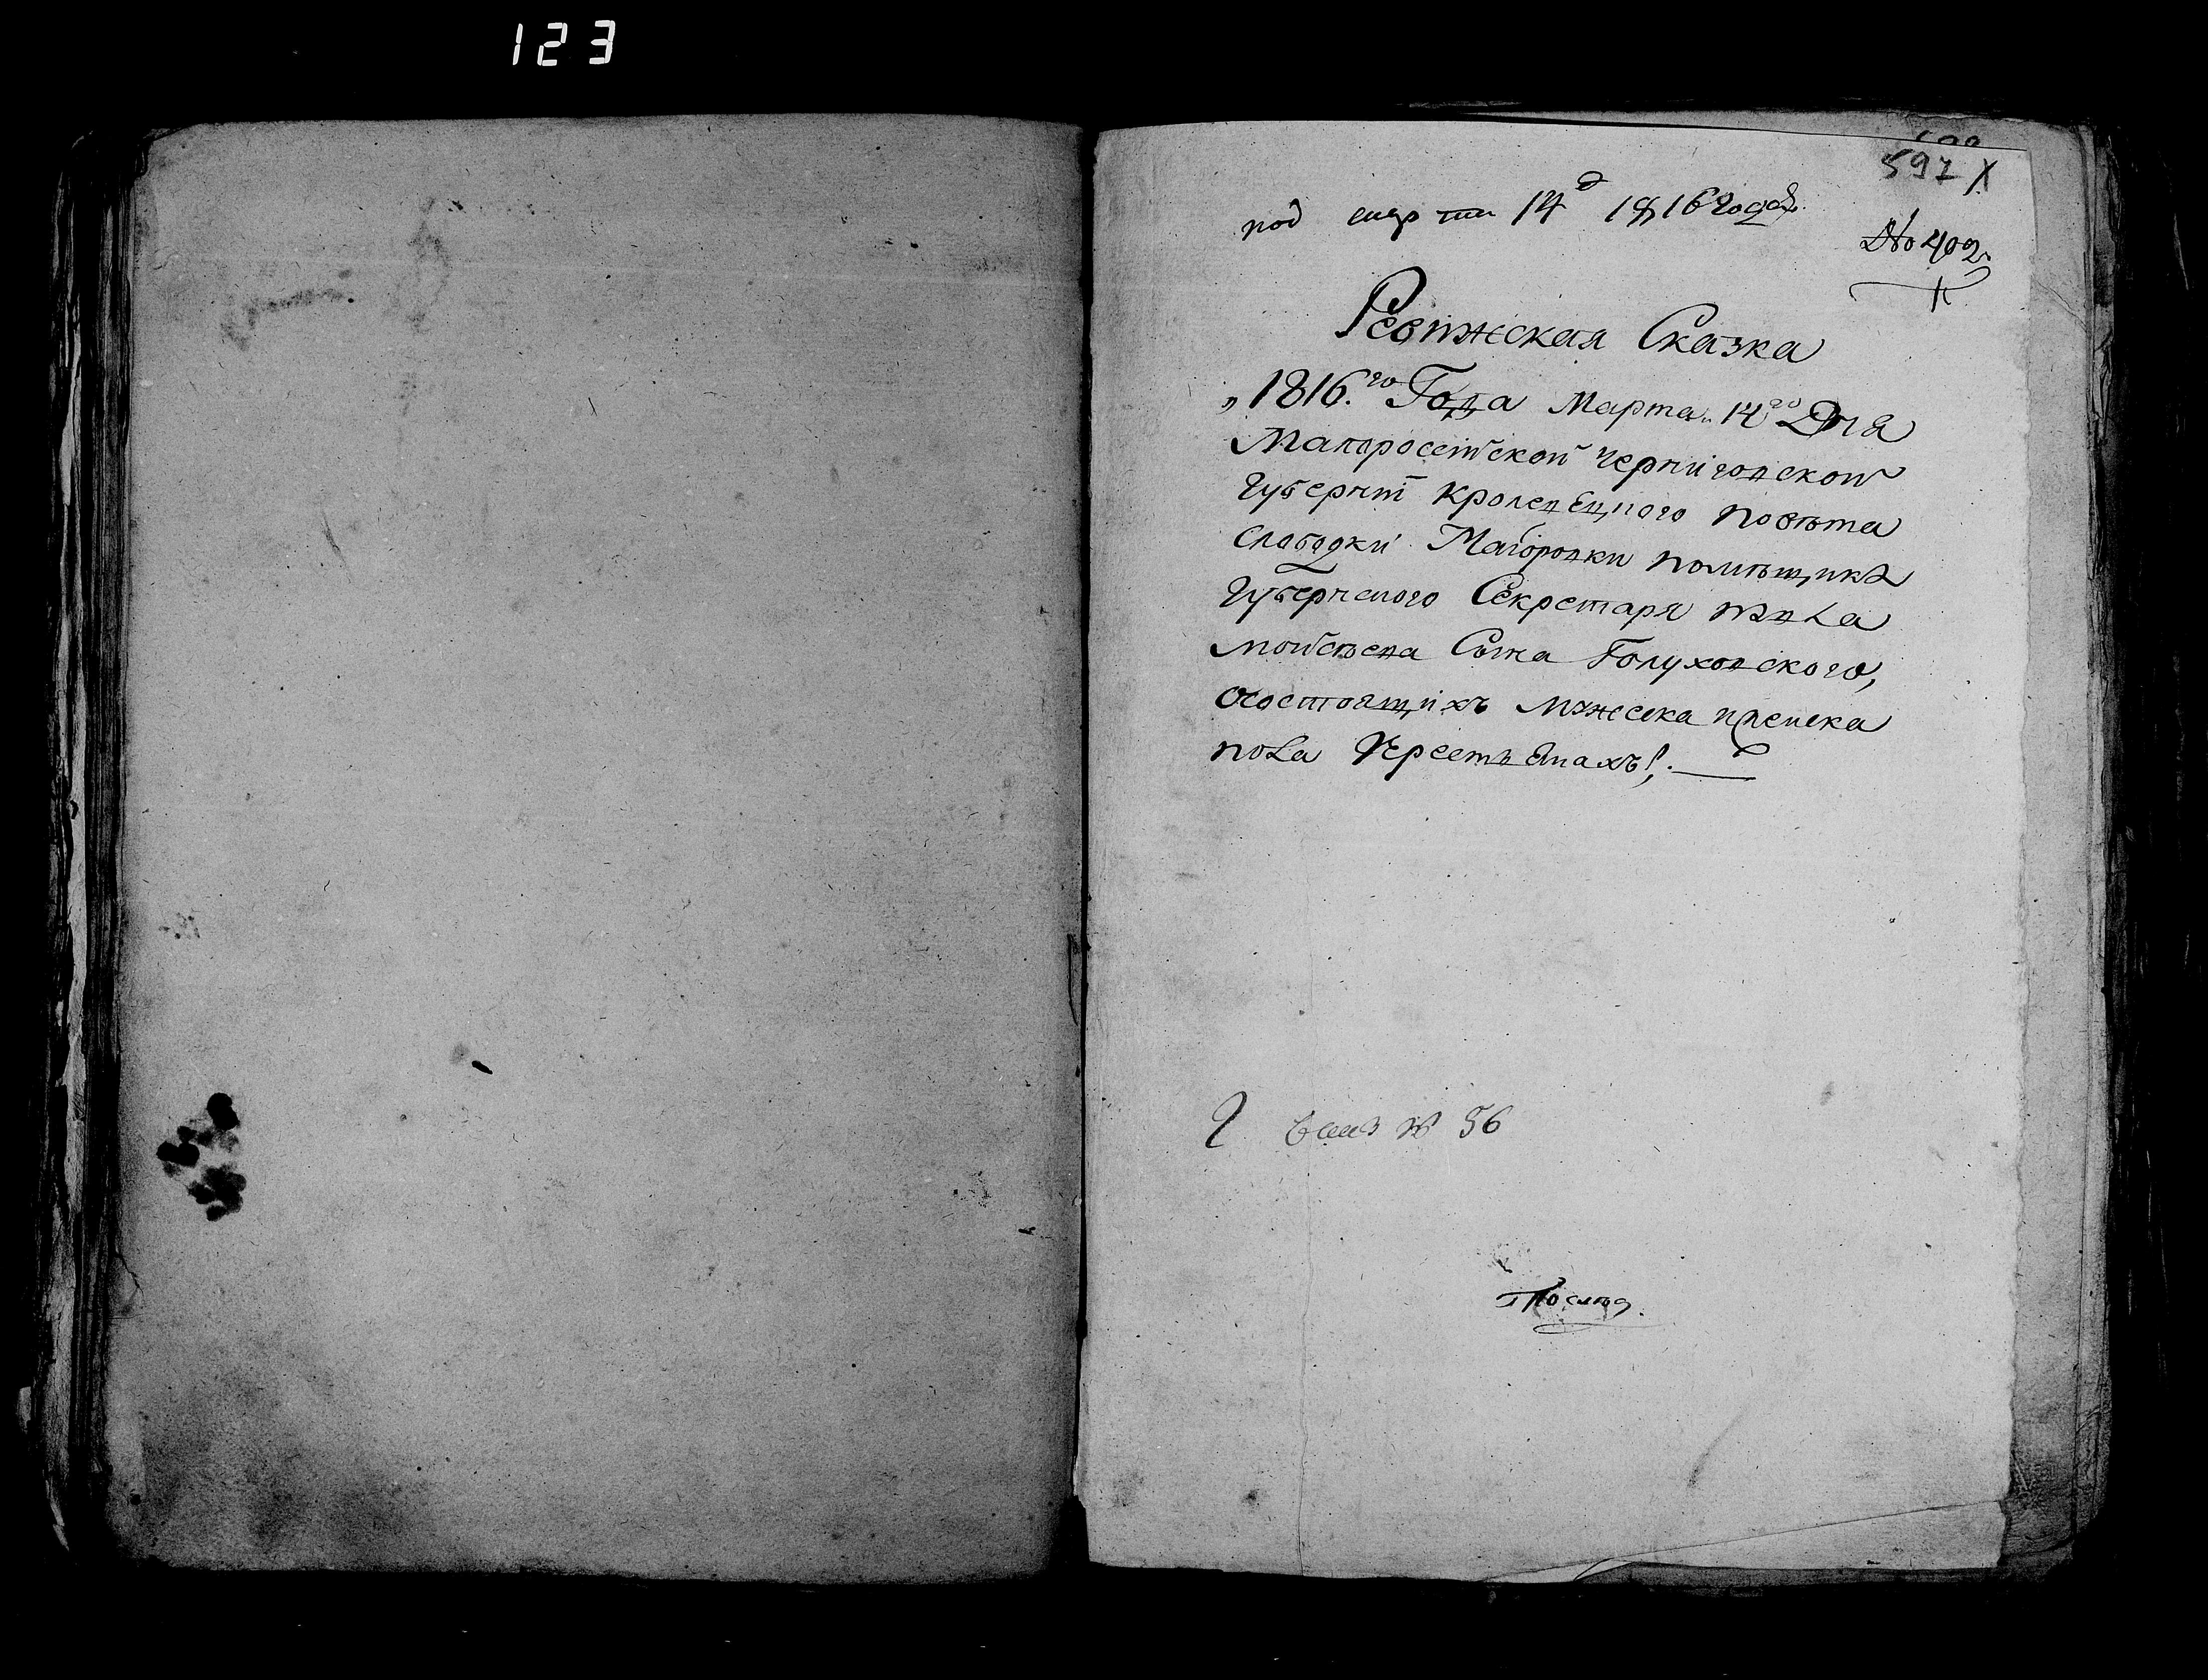 123
597 X
под мар 14д 1816 года
№ 402.
Ревижская Сказка
„1816.го Года Марта 14го Дня
Малоросейской Черниговской
Губернїи Кролевецкого повѣта
Слободки Магоровки помѣщика
Губернского Секретаря павла
мойсѣева Сына Голуховского,
осостоящихъ мужеска иженска
пола Крестьянахъ!,.
2 № 56
Послѣд.